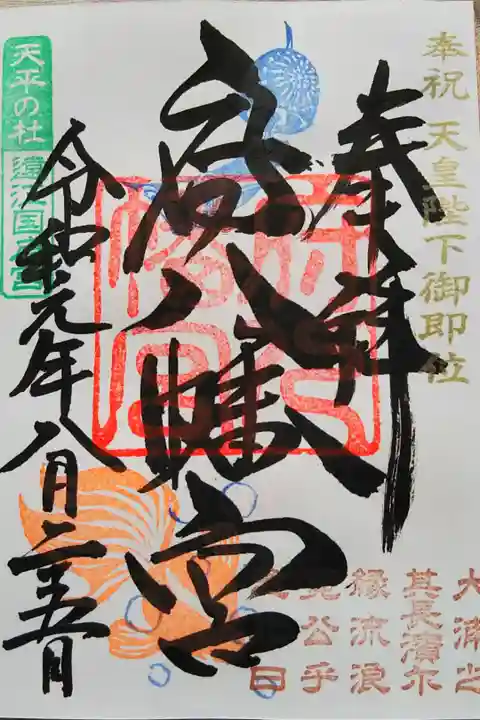 奉祝 天皇陛下御即位
奉拝
府八幡宮
令和元年八月二十五日
天平の杜
遠江国
大浦之
其長濱尓
縁流浪
公乎
日